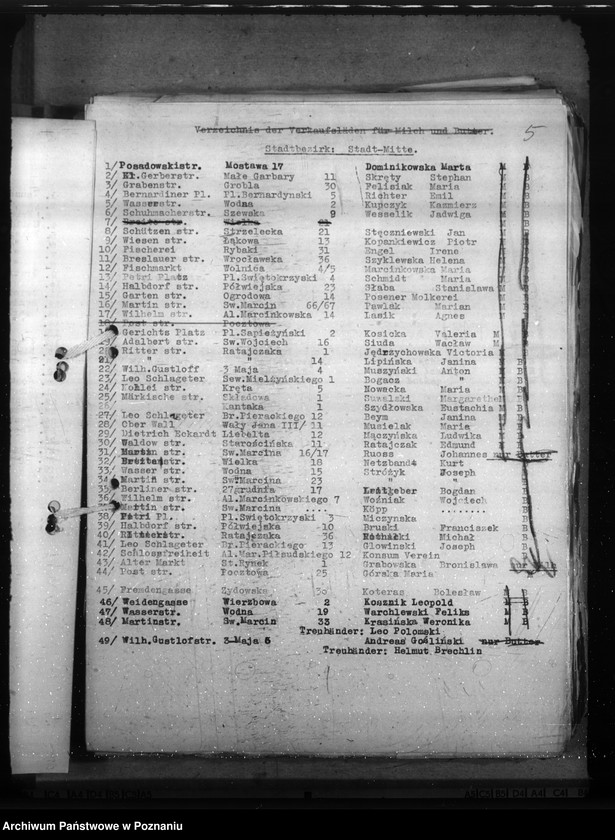 Verzeichnis der Verkaufsläden für Milch und Butter.
5
Stadtbezirk: Stadt-Mitte.
1/ Posadowskistr. Mostawa 17 Dominikowska Marta M B
2/ Kl.Gerberstr. Małe Garbary 11 Skręty Stephan M B
3/ Grabenstr. Grobla 30 Felisiak Maria M B
4/ Bernardiner Pl. Pl.Bernardynski 5 Richter Emil M B
5/ Wasserstr. Wodna 2 Kupczyk Kazmierz M B
6/ Schuhmacherstr. Szewska 9 Wesselik Jadwiga M B
7/
8/ Schützen str. Strzelecka 21 Stęczniewski Jan M B
9/ Wiesen str. Łąkowa 13 Kopankiewicz Piotr M B
10/ Fischerei Rybaki 31 Engel Irene M B
11/ Breslauer str. Wrocławska 36 Szyklewska Helena M B
12/ Fischmarkt Wolnica 4/5 Marcinkowska Maria M B
13/ Petri Platz Pl.Świętokrzyski 4 Schmidt Maria M B
14/ Halbdorf str. Półwiejska 23 Słaba Stanisława M B
15/ Garten str. Ogrodowa 14 Posener Molkerei M B
16/ Martin str. Sw.Marcin 66/67 Pawlak Marian M B
17/ Wilhelm str. Al.Marcinkowska 14 Lasik Agnes M B
18/ Post str. Pocztowa
Gerichts Platz Pl.Sapieżyński 2 Kosicka Valeria M
Adalbert str. Sw.Wojciech 16 Siuda Wacław M
Ritter str. Ratajczaka 1 Jędrzychowska Victoria
21/ " " 14 Lipińska Janina M B
22/ Wilh.Gustloff 3 Maja 4 Muszyński Anton M B
23/ Leo Schlageter Sew.Mielżyńskiego 1 Bogacz " M B
24/ Kohlei str. Kręta 5 Nowacka Maria M B
25/ Märkische str. Składowa 1 Suwalski Margarethe M B
26/ Kantaka 1 Szydłowska Eustachia M B
27/ Leo Schlageter Br.Pierackiego 12 Beym Janina M B
28/ Ober Wall Wały Jana III/ 11 Musielak Maria M B
29/ Dietrich Eckardt Liebelta 12 Mączyńska Ludwika M B
30/ Waldow str. Starościńska 11 Ratajczak Edmund M B
31/ Martin str. Sw.Marcina 16/17 Ruoss Johannes nur Butter
32/ Breitestr. Wielka 18 Netzband Kurt M B
33/ Wasser str. Wodna 15 Stróżyk Joseph M B
34/ Martin str. Sw.Marcina 23 " " M B
35/ Berliner str. 27 grudnia 17 Leitgeber Bogdan M B
36/ Wilhelm str. Al.Marcinkowskiego 7 Woźniak Wojciech M B
Martin str. Sw.Marcina .... Köpp ..... M B
38/ Petri Pl. Pl.Świętokrzyski 3 Miczynska M B
39/ Halbdorf str. Półwiejska 10 Bruski Franciszek M B
40/ Ritterstr. Ratajczaka 36 Michał M B
41/ Leo Schlageter Br.Pierackiego 13 Glowinski Joseph M B
42/ Schlossfreiheit Al.Mar.Piłsudskiego 12 Konsum Verein M B
43/ Alter Markt St.Rynek 1 Grabowska Bronislawa
44/ Post str. Pocztowa 25 Górska Maria
45/ Fremdengasse Żydowska 30 Koteras Bolesław M B
46/ Weidengasse Wierzbowa 2 Kosznik Leopold M B
47/ Wasserstr. Wodna 19 Warchlewski Feliks M B
48/ Martinstr. Sw.Marcin 33 Krasińska Weronika M B
Treuhänder: Leo Polomski
49/ Wilh.Gustlofstr. 3 Maja 5 Andreas Gośliński nur Butter
Treuhänder: Helmut Brechlin
Archiwum Państwowe w Poznaniu